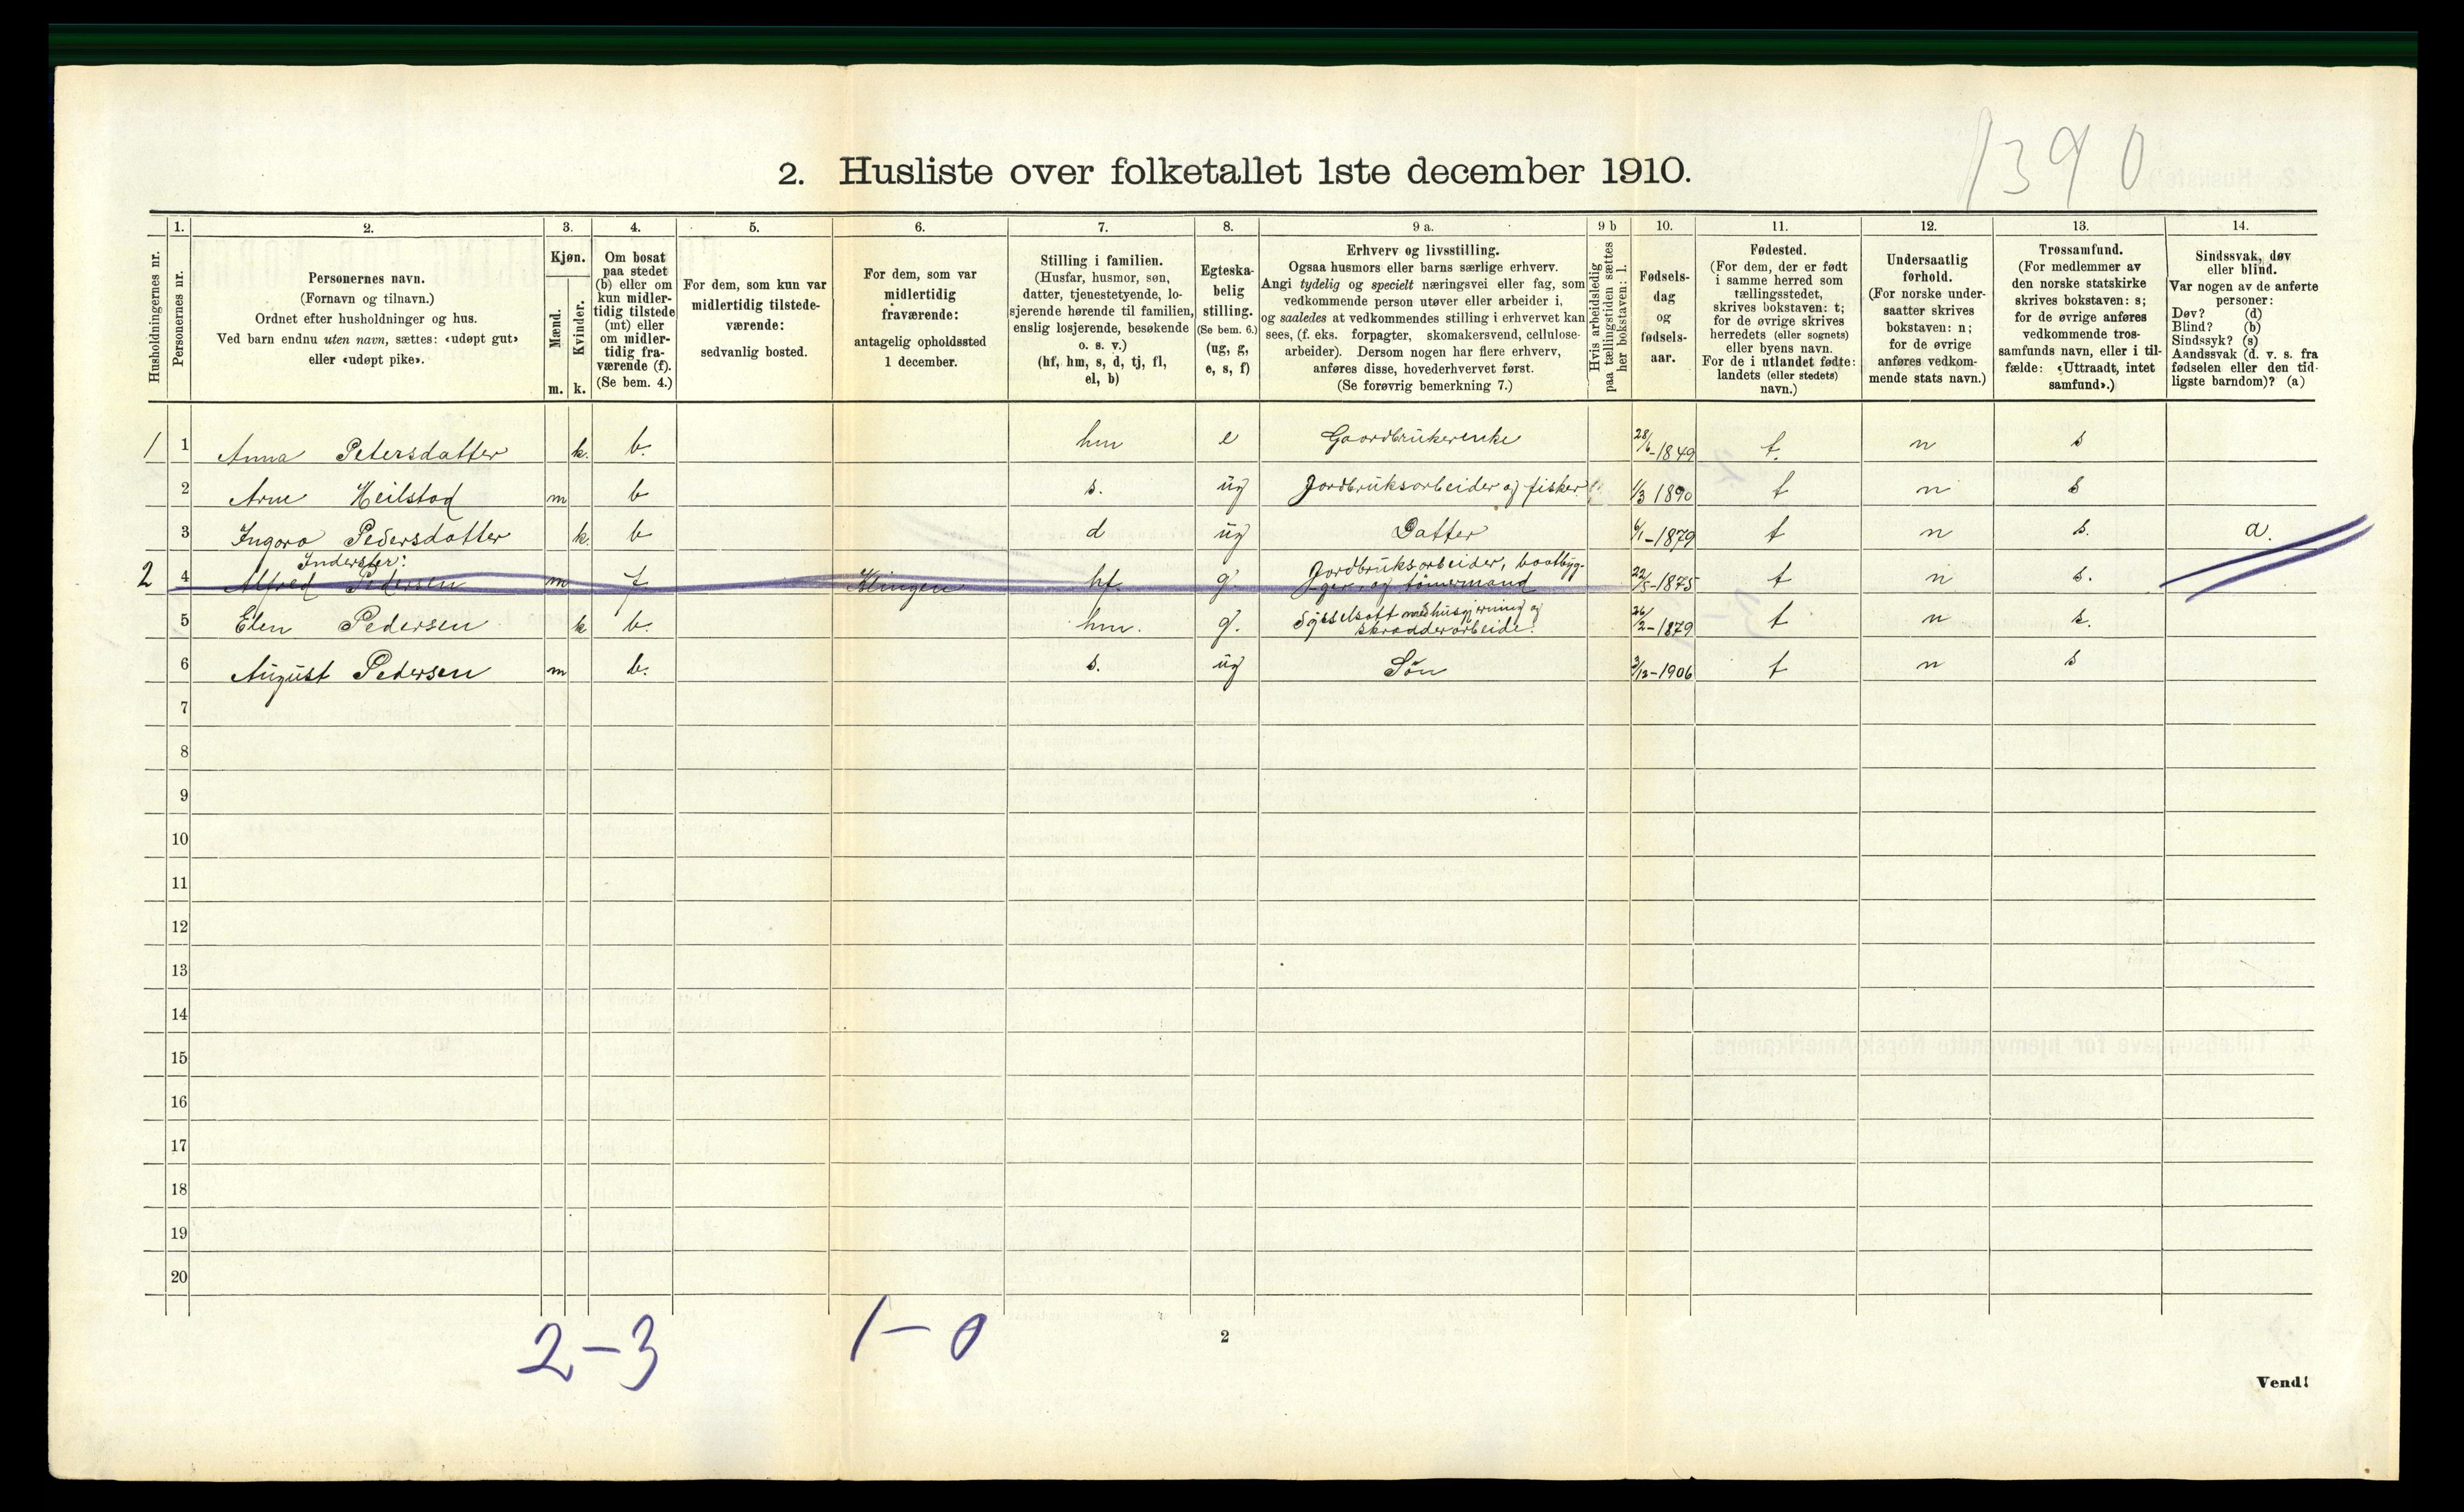 1390
2. Husliste over folketallet 1ste december 1910.
Husholdningernes nr.
1.
Personernes nr.
2.
Personernes navn.
(Fornavn og tilnavn.)
Ordnet efter husholdninger og hus.
Ved barn endnu uten navn, sættes: «udøpt gut»
eller «udøpt pike».
3.
Kjøn.
Mænd.
m.
Kvinder.
k.
4.
Om bosat
paa stedet
(b) eller om
kun midler-
tidig tilstede
(mt) eller
om midler-
tidig fra-
værende (f).
(Se bem. 4.)
5.
For dem, som kun var
midlertidig tilstede-
værende:
sedvanlig bosted.
6.
For dem, som var
midlertidig
fraværende:
antagelig opholdssted
1 december.
7.
Stilling i familien.
(Husfar, husmor, søn,
datter, tjenestetyende, lo-
sjerende hørende til familien,
enslig losjerende, besøkende
o. s. v.)
(hf, hm, s, d, tj, fl,
el, b)
8.
Egteska-
belig
stilling.
(Se bem. 6.)
(ug, g,
e, s, f)
9 a.
Erhverv og livsstilling.
Ogsaa husmors eller barns særlige erhverv.
Angi tydelig og specielt næringsvei eller fag, som
vedkommende person utøver eller arbeider i,
og saaledes at vedkommendes stilling i erhvervet kan
sees, (f. eks. forpagter, skomakersvend, cellulose-
arbeider). Dersom nogen har flere erhverv,
anføres disse, hovederhvervet først.
(Se forøvrig bemerkning 7.)
9 b
Hvis arbeidsledig
paa tællingstiden sættes
her bokstaven: l.
10.
Fødsels-
dag
og
fødsels-
aar.
11.
Fødested.
(For dem, der er født
i samme herred som
tællingsstedet,
skrives bokstaven: t;
for de øvrige skrives
herredets (eller sognets)
eller byens navn.
For de i utlandet fødte:
landets (eller stedets)
navn.)
12.
Undersaatlig
forhold.
(For norske under-
saatter skrives
bokstaven: n;
for de øvrige
anføres vedkom-
mende stats navn.)
13.
Trossamfund.
(For medlemmer av
den norske statskirke
skrives bokstaven: s;
for de øvrige anføres
vedkommende tros-
samfunds navn, eller i til-
fælde: «Uttraadt, intet
samfund».)
14.
Sindssvak, døv
eller blind.
Var nogen av de anførte
personer:
Døv? (d)
Blind? (b)
Sindssyk? (s)
Aandssvak (d. v. s. fra
fødselen eller den tid-
ligste barndom)? (a)
1 1 Anna Petersdatter k. b. hm e Gaardbrukerenke 28/6-1849 t. n s
2 Arne Heilstad m b s. ug Jordbruksarbeider og fisker 1/3 1890 t n s
3 Ingara Pedersdatter k. b d ug Datter 6/1-1879 t n s. a.
Inderster:
2 4 Alfred Pedersen m f. hf. g. Jordbruksarbeider, baatbyg-
ger og tømermand 22/5-1875 t n s.
5 Elen Pedersen k b. hm. g. Sysselsatt med husgjerning og
skrædderarbeide. 26/2-1879 t n s.
6 August Pedersen m b. s. ug Søn 3/12-1906 t n s
7
8
9
10
11
12
13
14
15
16
17
18
19
20
2-3 1-0
2
Vend!